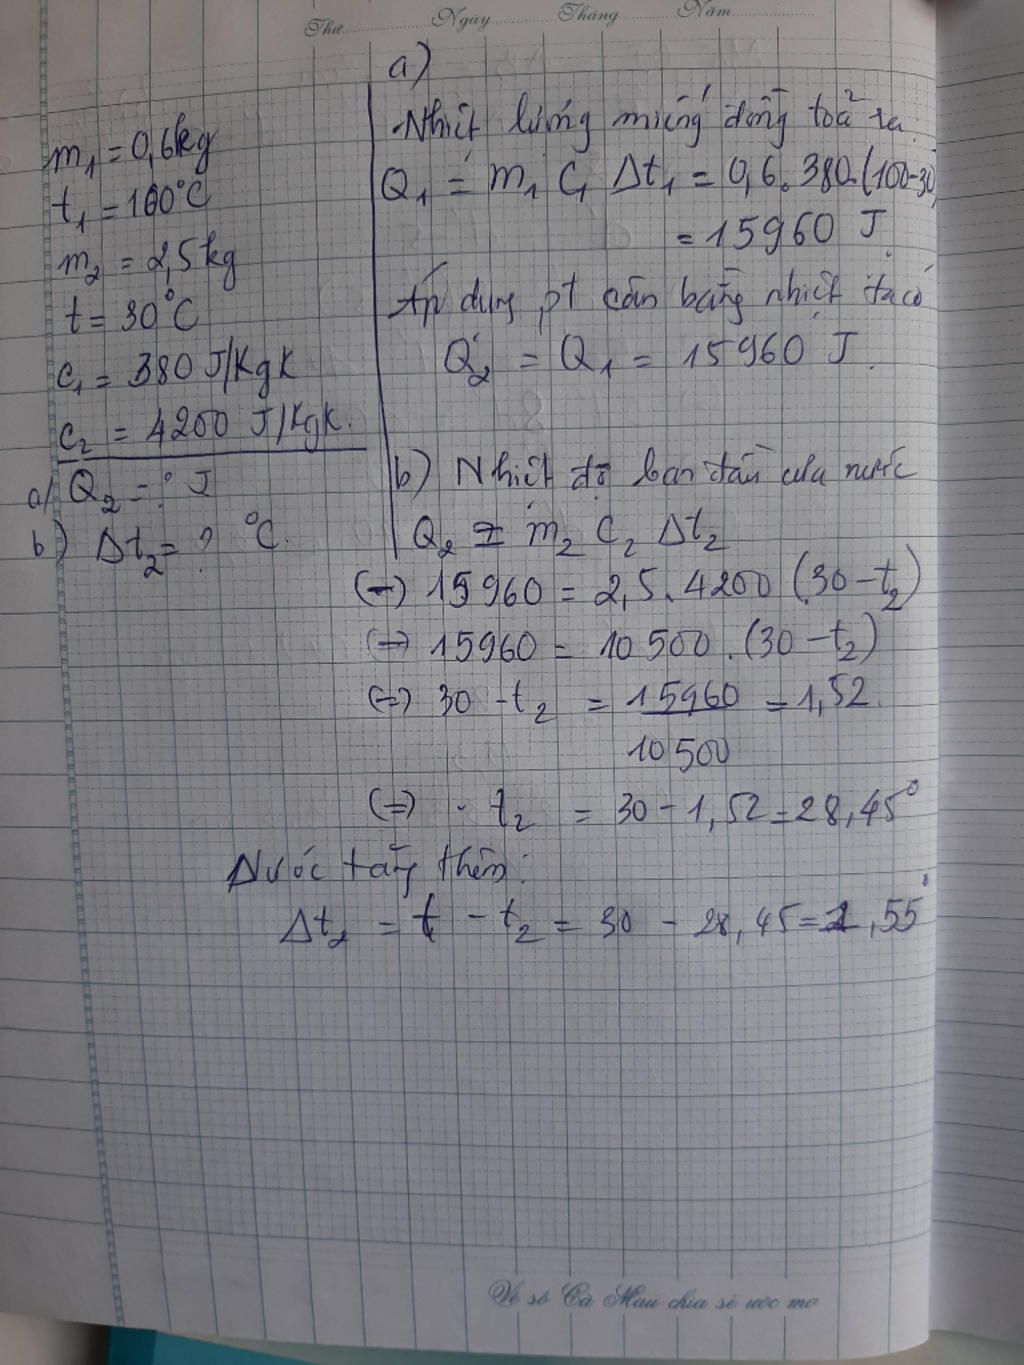 Thứ Ngày Tháng Năm
m₁ = 0,6kg
t₁ = 100°C
m₂ = 2,5kg
t = 30°C
c₁ = 380 J/KgK
c₂ = 4200 J/KgK.
a/ Q₂ = ? J
b) Δt₂ = ? °C.
a)
Nhiệt lượng miếng đồng toả ra:
Q₁ = m₁ C₁ Δt₁ = 0,6.380.(100-30)
= 15960 J
Áp dụng pt cân bằng nhiệt ta có
Q₂ = Q₁ = 15960 J.
b) Nhiệt độ ban đầu của nước
Q₂ = m₂ C₂ Δt₂
(=) 15960 = 2,5.4200 (30-t₂)
(=) 15960 = 10500.(30-t₂)
(=) 30 - t₂ = 15960 = 1,52.
10500
(=) t₂ = 30 - 1,52 = 28,45°
Nước tăng thêm:
Δt₂ = t - t₂ = 30 - 28,45 = 1,55°
Vé số Cà Mau chia sẻ ước mơ